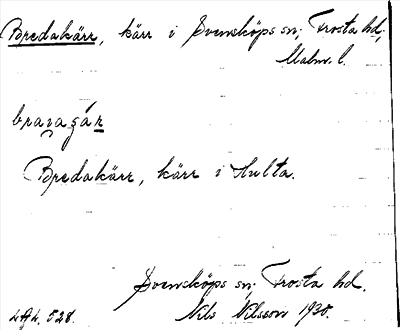 Bredakärr, kärr i Svensköps sn; Frosta hd;
Malm. l.
bravagáʀ
Bredakärr, kärr i Hulta.
Svensköps sn; Frosta hd.
Nils Nilsson 1930.
528.